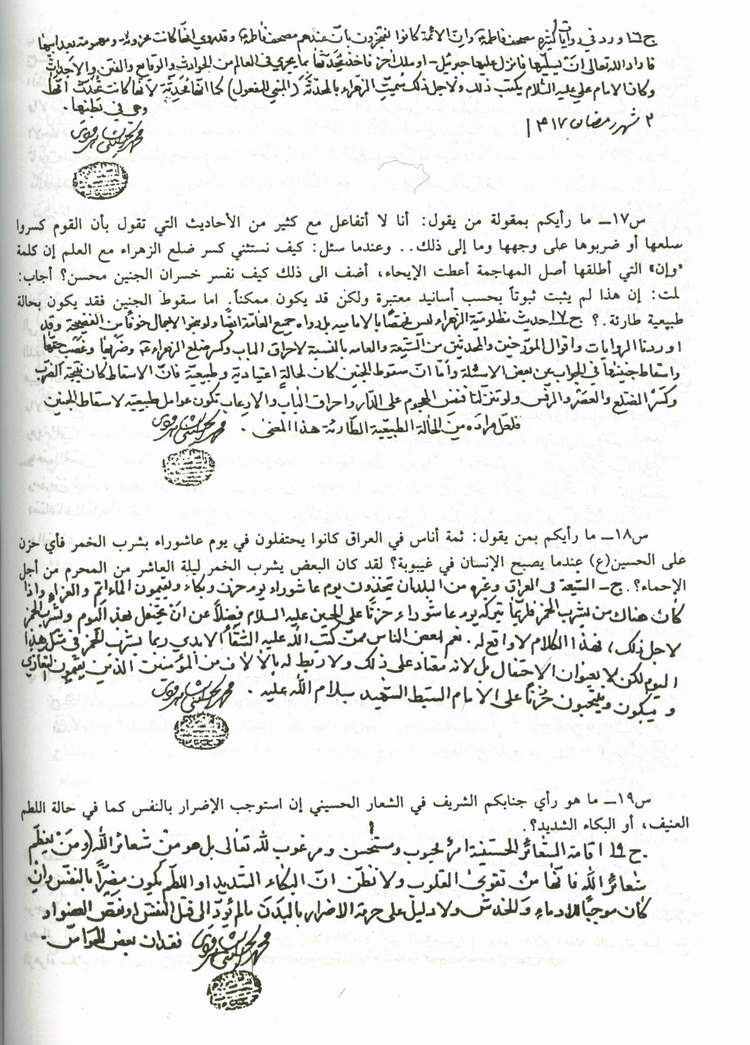 ج١٦ ورد في روايات كثيرة مصحف فاطمة وان الائمة كانوا يخبرون بأن عندهم مصحف فاطمة وقد روي انها كانت محزونة ومهمومة بعد ابيها
فاراد الله تعالى ان يسليها فانزل عليها جبرئيل - او ملك آخر فاخذ يحدثها بما يجري في العالم من الحوادث والوقايع والفتن والاحداث
وكان الامام علي عليه السلام يكتب ذلك ولاجل ذلك سميت الزهراء بالمحدثة (المبني للمفعول) كما انها محدثة لانها كانت تحدث امها
وهي في بطنها.
٢ شهر رمضان ١٤١٧
س١٧ـ ما رأيكم بمقولة من يقول: أنا لا أتفاعل مع كثير من الأحاديث التي تقول بأن القوم كسروا
ضلعها أو ضربوها على وجهها وما إلى ذلك.. وعندما سئل: كيف نستثني كسر ضلع الزهراء مع العلم إن كلمة
«وإن» التي أطلقها أصل المهاجمة أعطت الإيحاء، أضف الى ذلك كيف نفسر خسران الجنين محسن؟ أجاب:
لمت: إن هذا لم يثبت ثبوتاً بحسب أسانيد معتبرة ولكن قد يكون ممكناً. اما سقوط الجنين فقد يكون بحالة
طبيعية طارئة.؟ ج١٧ حديث مظلومية الزهراء ليس مختصا بالاماميه بل رواه جميع العامة ايضا ولو بنحو الاجمال خوفا من الفضيحة وقد
اوردنا الروايات واقوال المورخين والمحدثين من الشيعة والعامه بالنسبة لاحراق الباب وكسر ضلع الزهراء وضربها وغصب حقها
واسقاط جنينها في الجواب عن بعض الاسئلة واما ان سقوط الجنين كان لحالة اعتيادية وطبيعية فان الاسقاط كان نتيجة الضرب
وكسر الضلع والعصر والرفس ولو تنزلنا فنفس الهجوم على الدار واحراق الباب والارعاب تكون عوامل طبيعية لاسقاط الجنين
فلعل مراده من الحالة الطبيعية الطارئة هذا المعنى.
س١٨ـ ما رأيكم بمن يقول: ثمة أناس في العراق كانوا يحتفلون في يوم عاشوراء بشرب الخمر فأي حزن
على الحسين(ع) عندما يصبح الإنسان في غيبوبة؟ لقد كان البعض يشرب الخمر ليلة العاشر من المحرم من أجل
الإحماء؟. ج - الشيعة في العراق وغيره من البلدان يتخذون يوم عاشوراء يوم حزن وبكاء ويقيمون المآتم والعزاء واذا
كان هناك من يشرب الخمر فربما يتركه يوم عاشوراء حزنا على الحسين عليه السلام فضلا عن ان يحتفل بهذا اليوم ولشرب الخمر
لاجل ذلك، فهذا الكلام لا واقع له. نعم لبعض الناس ممن كتب الله عليه الشقاء الابدي ربما يشرب الخمر في مثل هذا
اليوم لكن لا بعنوان الاحتفال بل لانه معتاد على ذلك ولا ربط له بالالاف من المؤمنين الذين يقيمون التعازي
و يبكون وينتحبون حزنا على الامام السبط الشهيد سلام الله عليه.
س١٩ـ ما هو رأي جنابكم الشريف في الشعار الحسيني إن استوجب الإضرار بالنفس كما في حالة اللطم
العنيف، أو البكاء الشديد؟.
ج١٩ اقامة الشعائر الحسينية امر محبوب ومستحسن ومرغوب لله تعالى بل هو من شعائر الله (ومن يعظم
شعائر الله فانها من تقوى القلوب ولا نظن ان البكاء الشديد او اللطم يكون مضرا بالنفس وان
كان موجبا للادماء والخدش ولا دليل على حرمة الاضرار بالبدن ما لم يؤد الى قتل النفس او نقص العضو او
فقدان بعض الحواس.